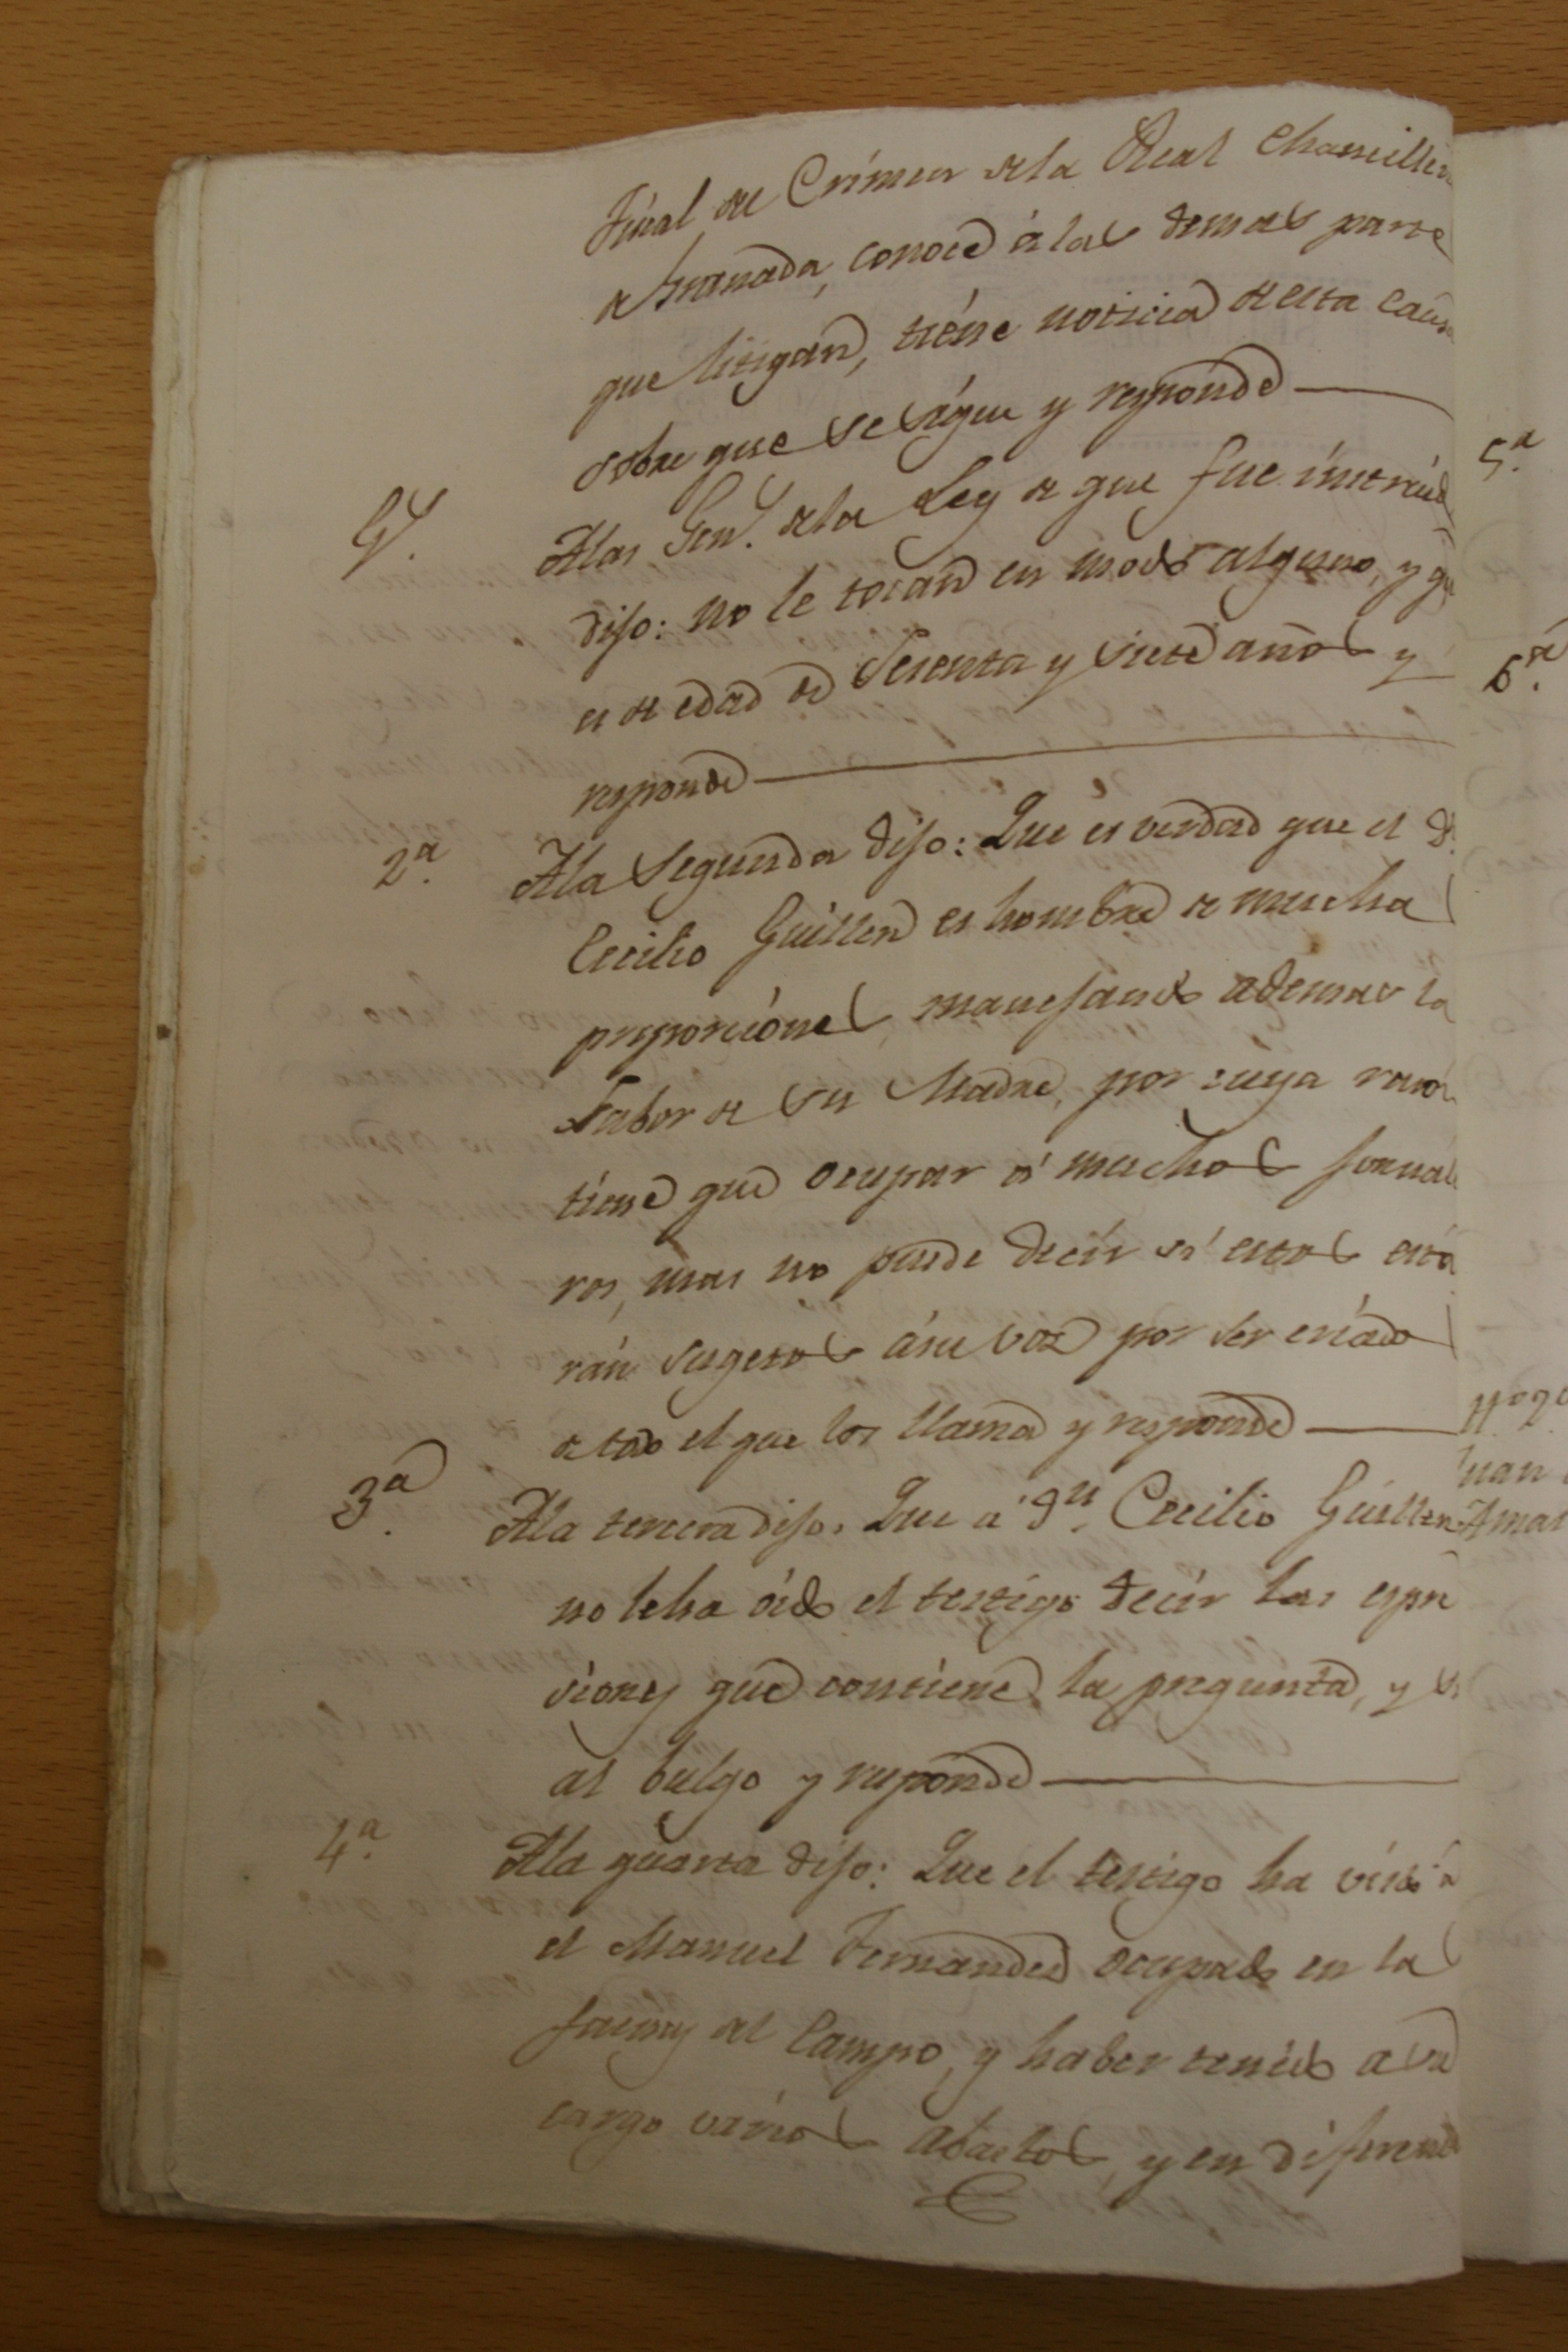 Fiscal del Crimen de la Real Chancilleri
de Granada, conoce á las demas parte
que litigan, tiene noticia de esta caus
sobre que se sigue y responde
G.s A las Gen.s de la Ley de que fue instruid
dijo: no le tocan en modo alguno, y q
es de edad de sesenta y siete años y
responde
2.a A la segunda dijo: Que es verdad que el D.
Cecilio Guillen es hombre de mucha
proporciones, manejando ademas la
Labor de su Madre, por cuya razon
tiene que ocupar á muchos jornale
ros, mas no puede decir si estos esta
rán sugetos á su voz por ser criado
de todo el que los llama y responde
3.a A la tercera dijo: Que a D.n Cecilio Guillen
no le ha oido el testigo decir las espre
siones que contiene la pregunta, y si
al bulgo y responde
4.a A la quarta dijo: Que el testigo ha visto a
el Manuel Fernandez ocupado en las
faenas del Campo, y haber tenido a su
cargo varios abastos, y en diferente
5.a
6.a
uan
Amar